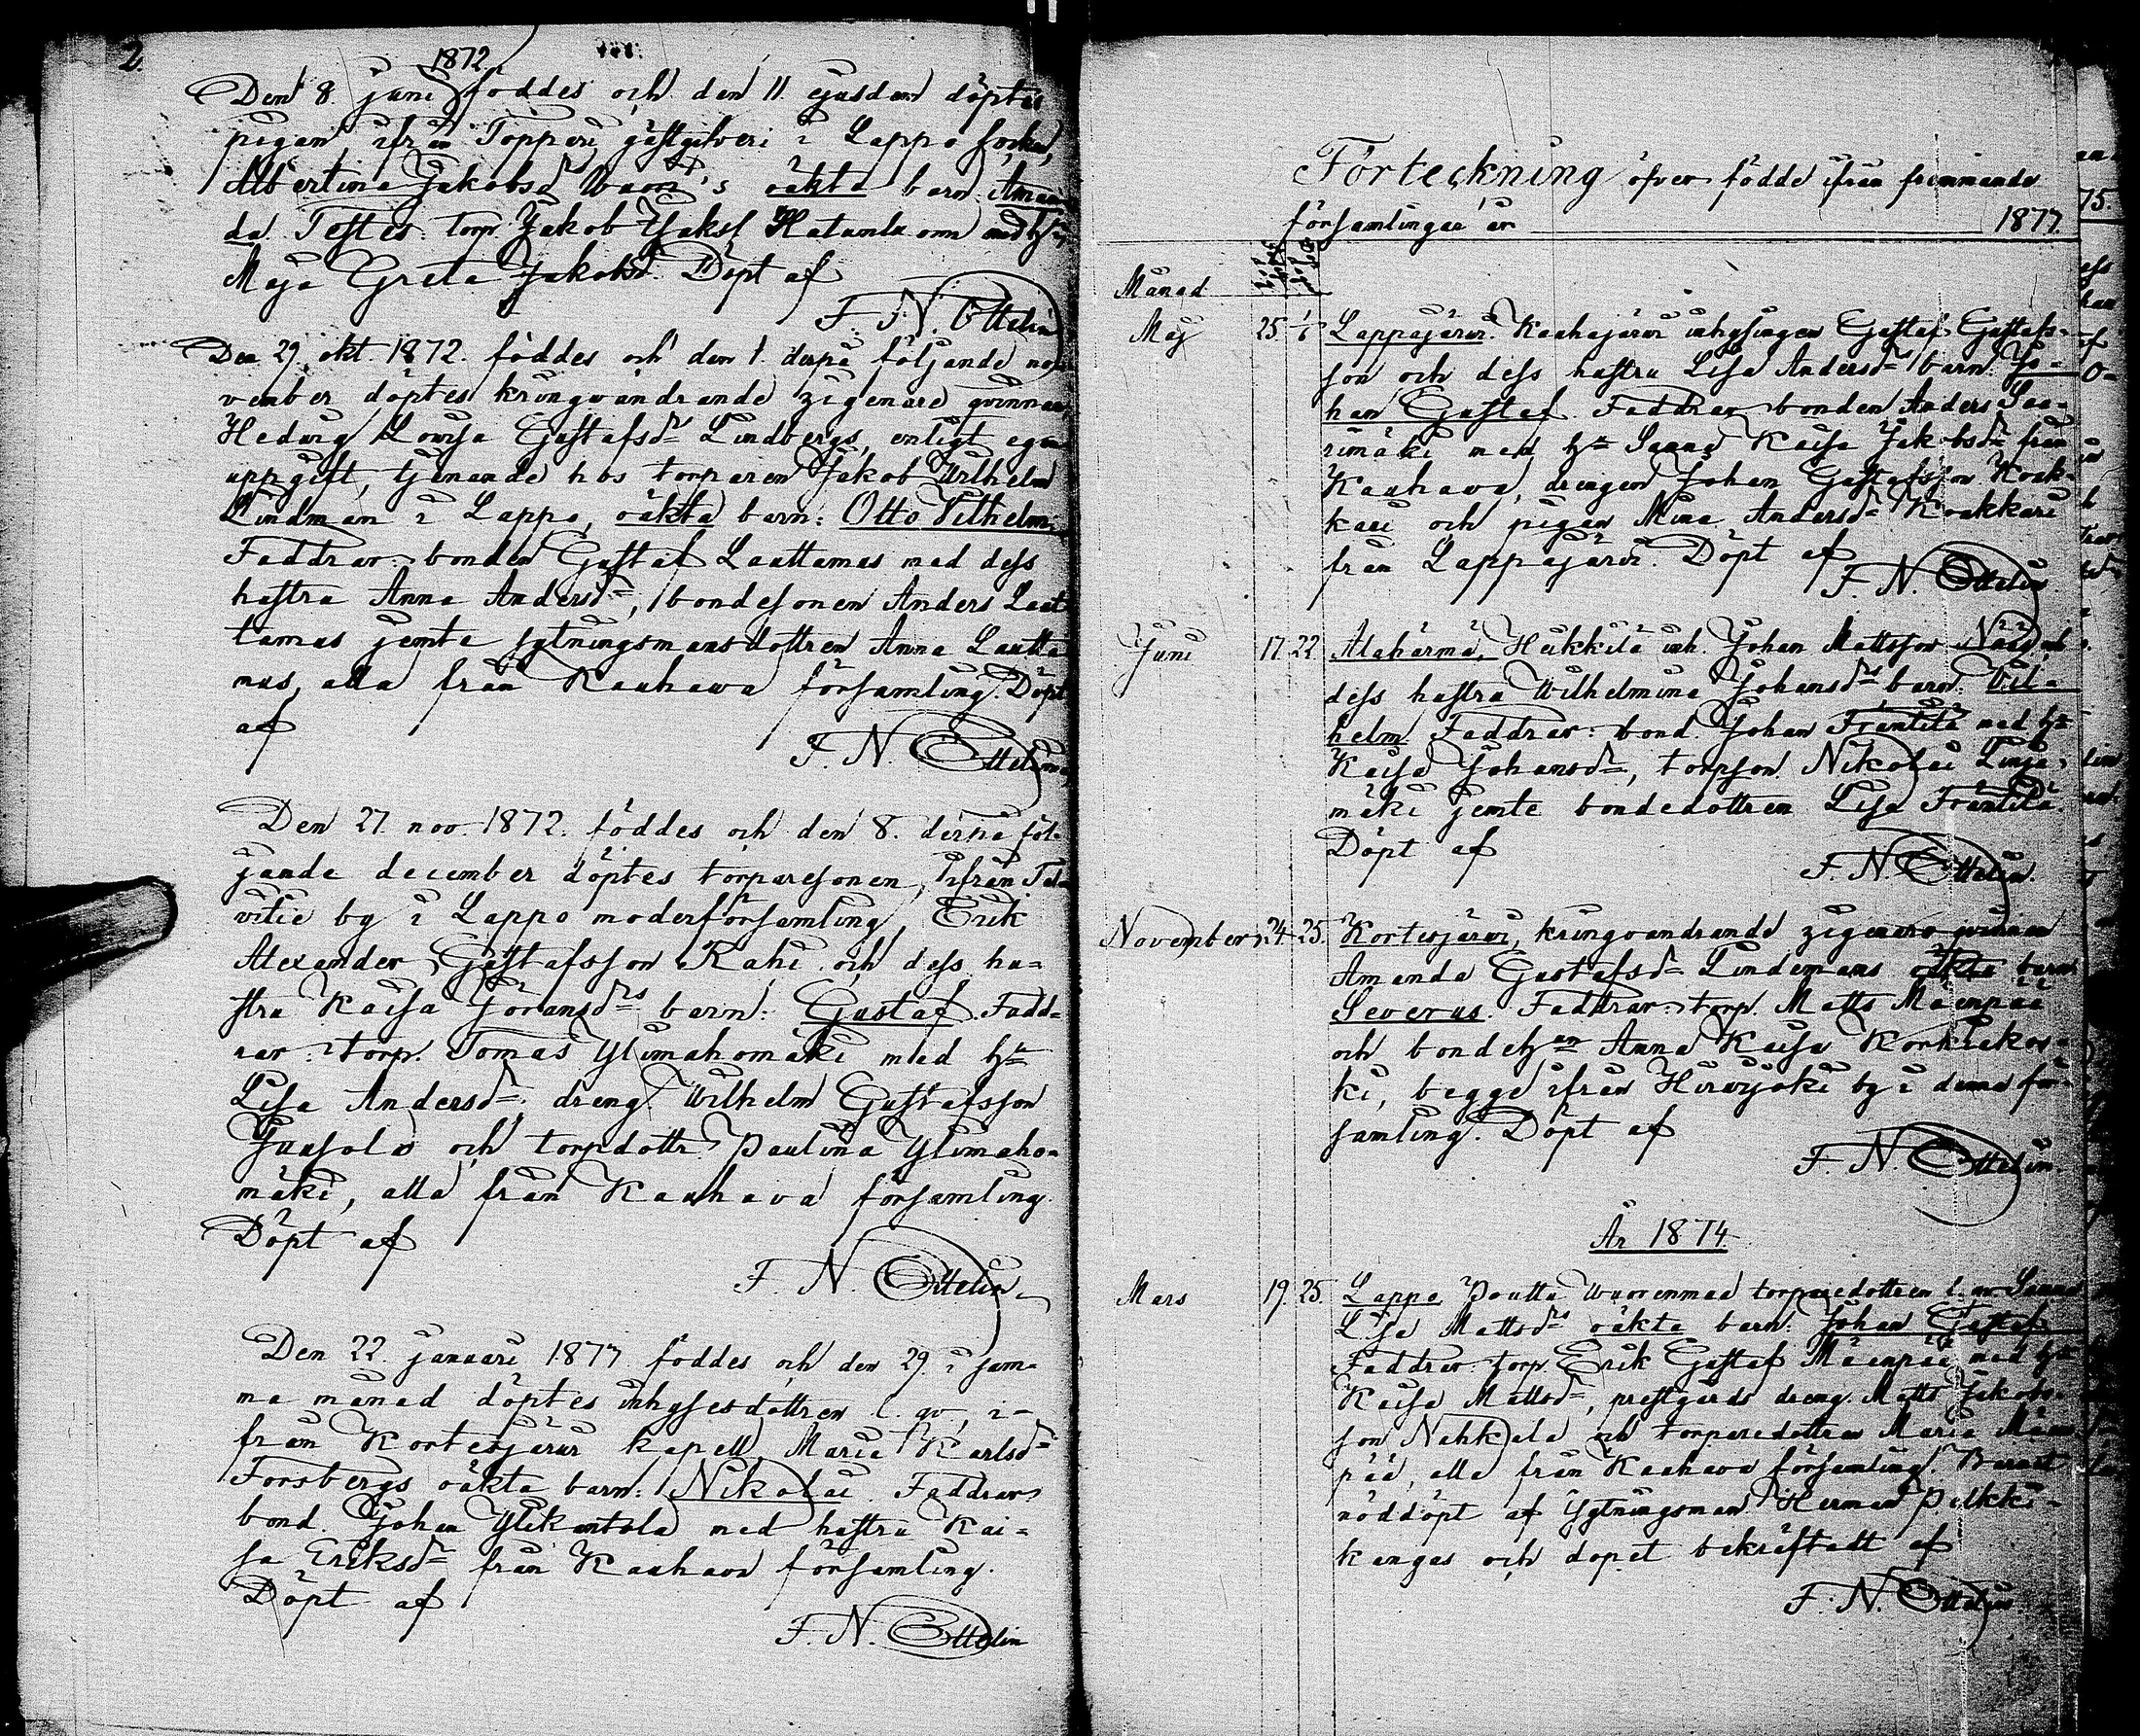 2.
1872.
Den 8. juni föddes och den 11. ejusdem döptes
pigans ifrån Topparj gästgifveri i Lappo socken,
Albertina Jakobsdrs oäkta barn: Aman-
da. Testes: torp. Jakob Jakss. Hatanka om med hu
Maja Greta Jakobsdr. Döpt af
F. N. Ottelin
Den 29. okt. 1872. föddes och den 1. derpå följande no-
vember döptes kringvandrande zigenare qvinnans
Hedvig Lovisa Gustafsdr Lindbergs, enligt egen
uppgift, tjenande hos torparen Jakob Wilhelm
Lindman i Lappo, oäkta barn: Otto Vilhelm.
Faddrar: bonden Gustaf Lauttamus med dess
hustru Anna Andersdr, bondesonen Anders Laut
tamus jemte sytningsmansdottren Anna Lautta
mus, alla från Kauhava församling. Döpt
af
F. N. Ottelin
Den 27. nov. 1872. föddes och den 8. derpå föl-
jande december döptes torparesonen, ifrån
by i Lappo moderförsamling, Erik
Alexander Gustafsson Rahi och dess hu-
stru Kaisa Göransdrs barn: Gustaf. Fadd-
rar: torp. Tomas Ylimahomäki med hu
Lisa Andersdr, dreng. Wilhelm Gustafsson
och torpdottr. Paulina Ylimaho-
mäki, alla från Kauhava församling.
Döpt af
F. N. Ottelin
Den 22. januari 1877 föddes och den 29. i sam-
ma månad döptes inhysesdottren l. qv, i-
från Kortesjärvi kapell Maria Karlsdr
Forsbergs oäkta barn: Nikolai. Faddrar:
bond. Johan Ylikantola med hustru Kai-
sa Eriksdr från Kauhava församling.
Döpt af
F. N. Ottelin
Förteckning öfver födde ifrån fremmande
församlingar år 1877.
Månad
Maj 25. 1/6 Lappajärvi. Kauhajärvi inhysingen Gustaf Gustafs-
son och dess hustru Lisa Andersdrs barn: Jo-
han Gustaf. Faddrar bonden Anders Saa-
rimäki med hu Sanna Kaisa Jakobsdr från
Kauhava, drengen Johan Gustafsson Koak-
kari och pigan Mina Andersdr Koakkari
från Lappajärvi. Döpt af
F. N. Ottelin
Juni 17. 22. Alahärmä, Heikkilä inh. Johan Mattsson och
dess hustru Wilhelmina Johansdrs barn: Vil-
helm. Faddrar: bond. Johan Frantilä med hu
Kaisa Johansdr, torpson Nikolai Linja-
mäki jemte bondedottren Lisa Frantilä.
Döpt af
F. N. Ottelin.
November 24. 25. Kortesjärvi, kringvandrande zigenare qvinnan
Amanda Gustafsdr Lindemans oäkta barn
Severus. Faddrar: torp. Matts Mäenpää
och bondehun Anna Kaisa Korkiakos-
ki, begge ifrån Hirvijoki by i denna för-
samling. Döpt af
F. N. Ottelin.
År 1874
Mars 19. 25. Lappo Poutta Wuorenmaa torparedottren l. qv Sanna
Lisa Mattsdrs oäkta barn: Johan Gustaf
Faddrar: torp Erik Gustaf Mäenpää med hu
Kaisa Mattsdr, prestgårds dreng. Matts Jakobs-
son Nahkala och torparedottren Maria Mäen
pää, alla från Kauhava församling. Barnet
nöddöpt af sytningsman Herman Pelkki-
kangas och dopet bekräftadt af
F. N. Ottelin.